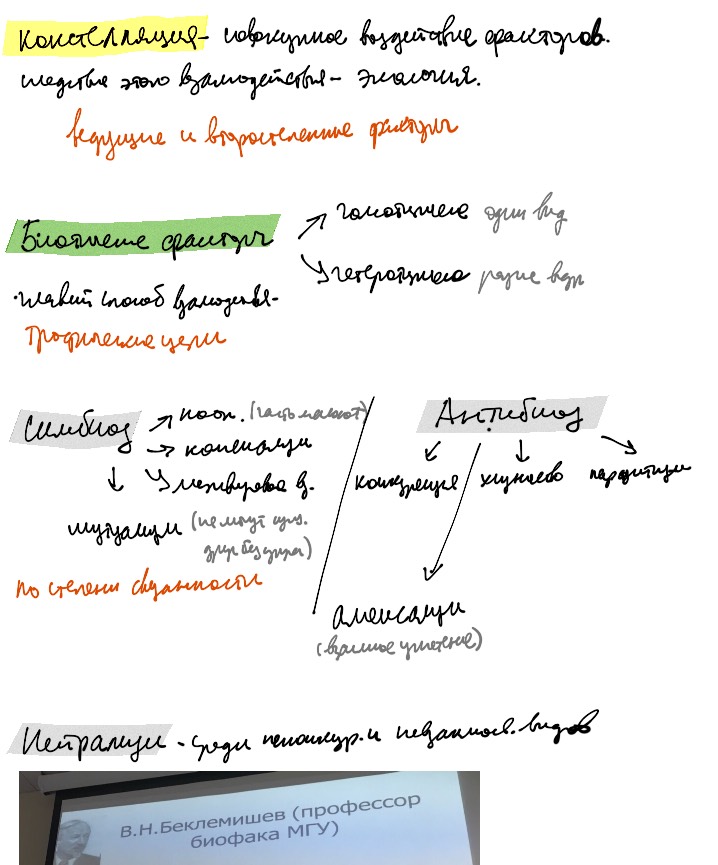 Констелляция - совокупное воздействие факторов.
следствие этого взаимодействия - экология.
ведущие и второстепенные факторы
Биотические факторы
гомотипические один вид
гетеротипические разные виды
главный способ взаимодействия -
Трофические цепи
Симбиоз
кооп.
комменсализм
межвидовая вз.
мутуализм (не могут сущ.
друг без друга)
по степени связанности
Антибиоз
конкуренция
хищничество
паразитизм
аменсализм
(взаимное угнетение)
Нейтрализм - среди неконкур. и невзаимосв. видов
В.Н.Беклемишев (профессор
биофака МГУ)